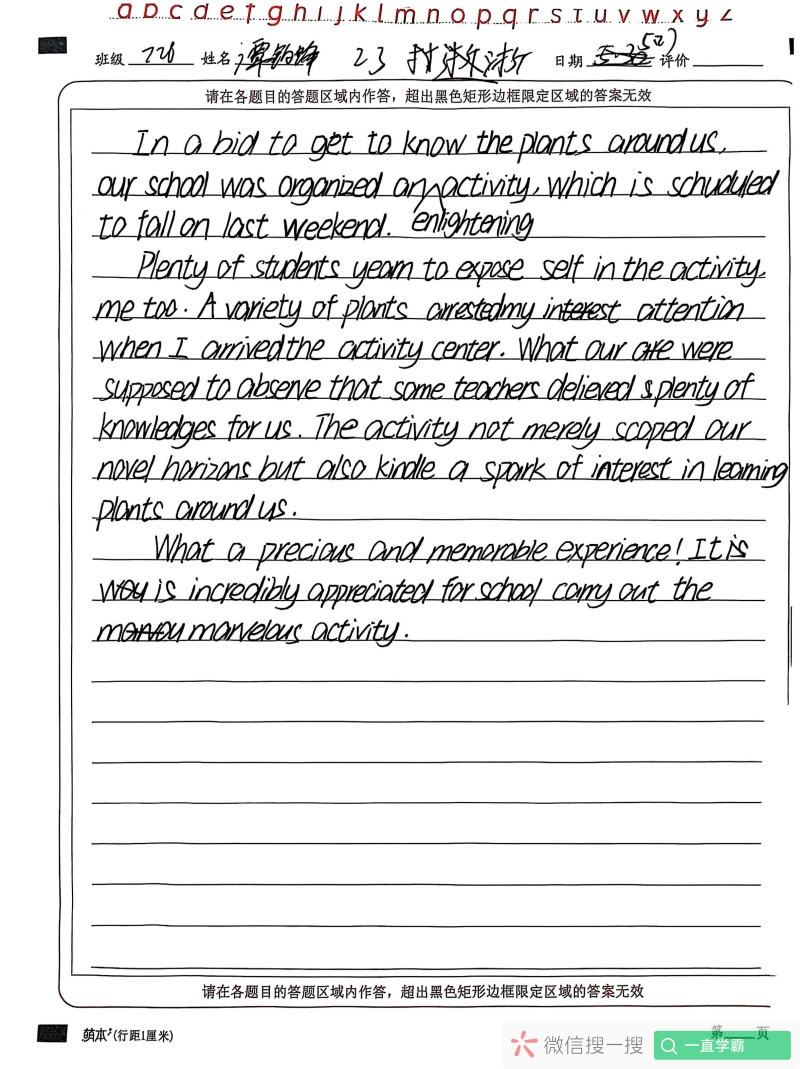 a b c d e f g h i j k l m n o p q r s t u v w x y z
班级 726 姓名 23 日期 评价
请在各题目的答题区域内作答，超出黑色矩形边框限定区域的答案无效
In a bid to get to know the plants around us,
our school was organized an enlightening activity, which is schuduled
to fall on last weekend.
Plenty of students yearn to expose self in the activity,
me too. A variety of plants arrested my interest attention
when I arrived the activity center. What our are were
supposed to observe that some teachers delieved plenty of
knowledges for us. The activity not merely scoped our
novel horizons but also kindle a spark of interest in learning
plants around us.
What a precious and memorable experience! It is
is incredibly appreciated for school carry out the
marvelous activity.
请在各题目的答题区域内作答，超出黑色矩形边框限定区域的答案无效
(行距1厘米)
第 页
微信搜一搜 一直学霸